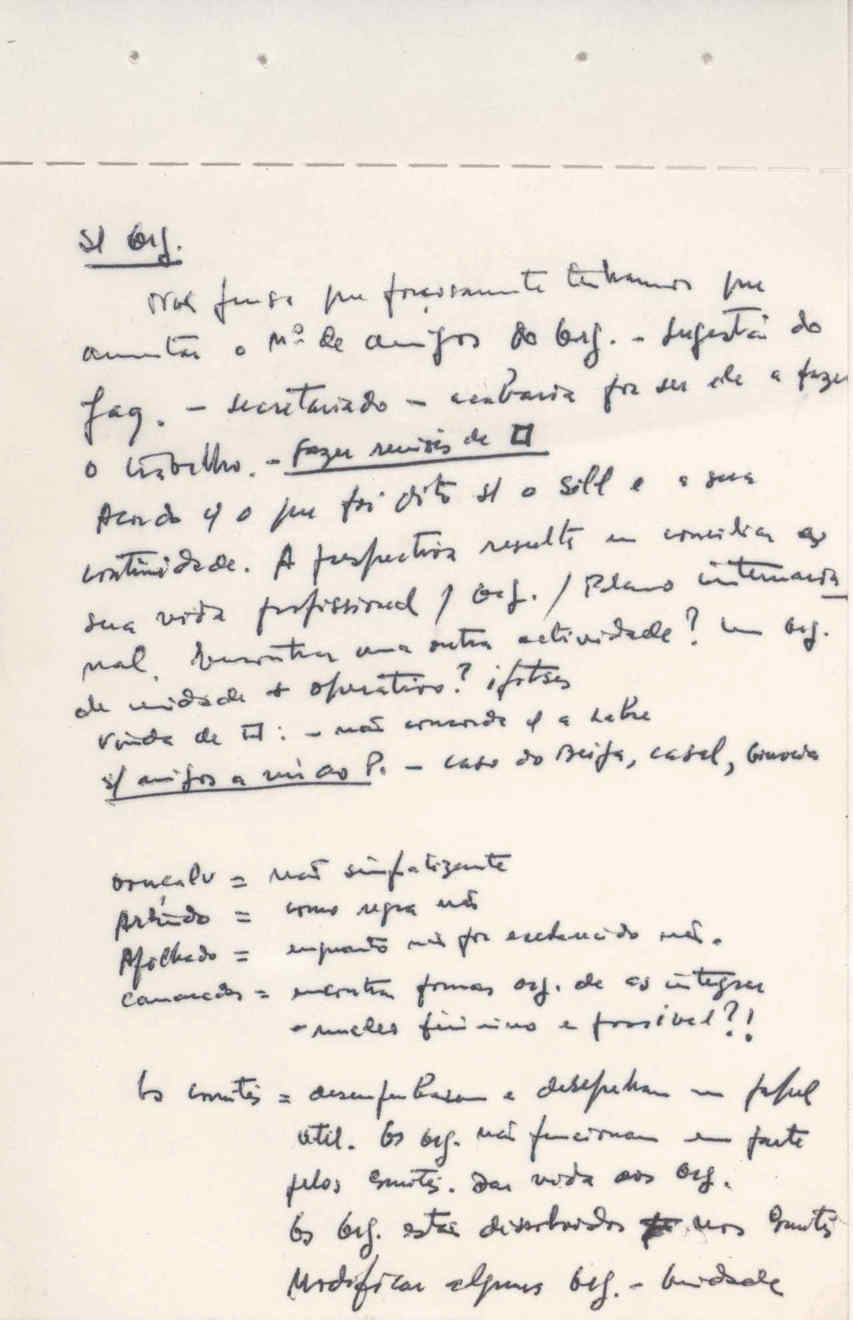 s/ Org.
Não pensa que forçosamente tenhamos que
aumentar o nº de amigos do Org. - Sugestão do
Jaq. - secretariado - acabaria por ser ele a fazer
o trabalho. - Fazer revisões de □
Acordo c/ o que foi dito s/ o e a sua
continuidade. A perspectiva resulta em conciliar a
sua vida profissional / Org. / Plano internacio
nal. Encontrar uma outra actividade? um Org.
de unidade + operativo?
Vinda de □: - não concorda c/ a
s/ amigos a vir ao P. - caso do casal,
Gonçalo = não simpatizante
Arlindo = como regra não
Afilhado = enquanto não for esclarecido não.
Camaradas = encontrar formas org. de as integrar
- núcleo feminino é possível?!
Os comités = desempenharam e desempenham um papel
útil. Os Org. não funcionam em parte
pelos Comités. Dar vida aos Org.
Os Org. estão dissolvidos nos Comités
Modificar alguns Org. - Unidade